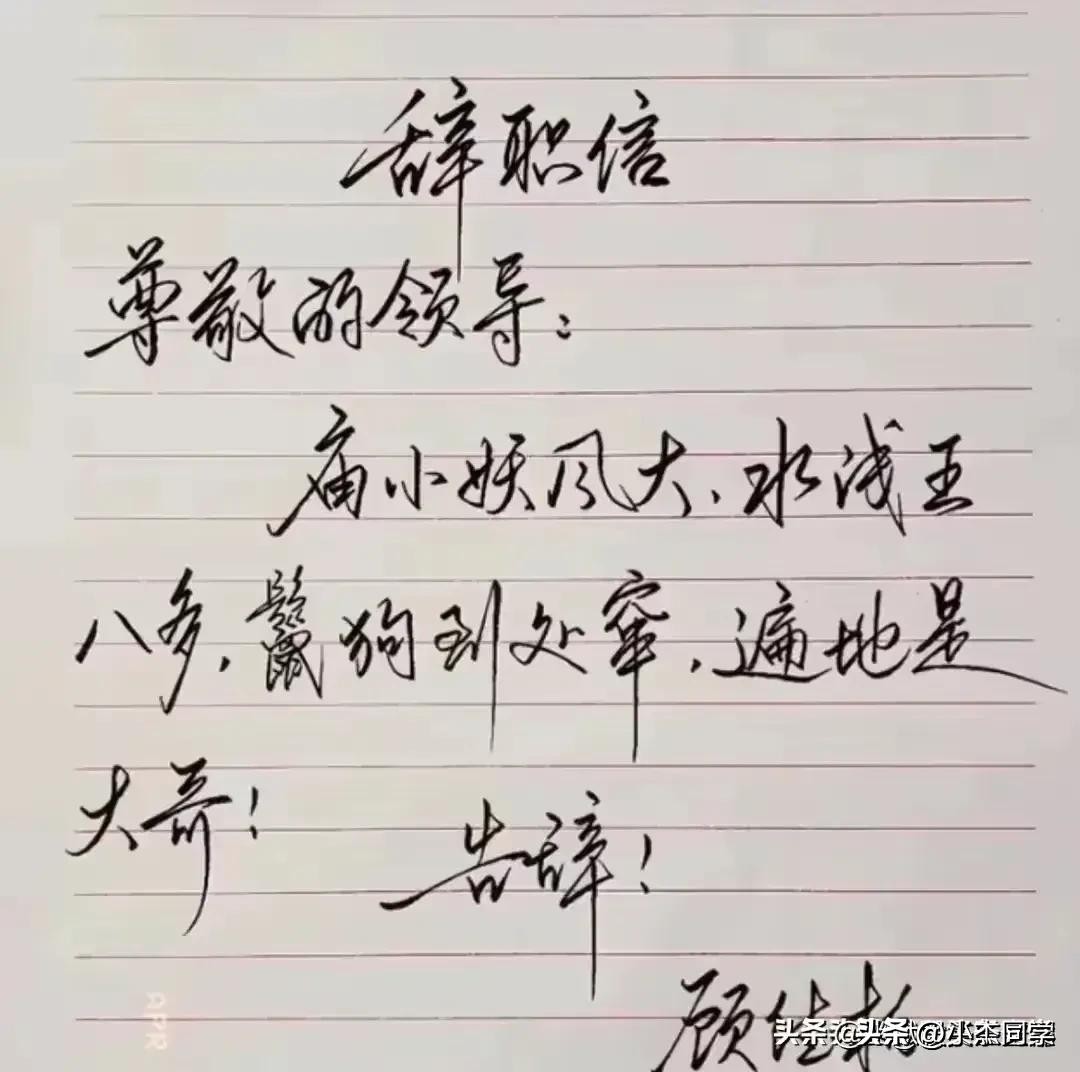 辞职信
尊敬的领导：
庙小妖风大、水浅王
八多，鬣狗到处窜，遍地是
大哥！
告辞！
顾佳
头条@头条@小杰同学
APR